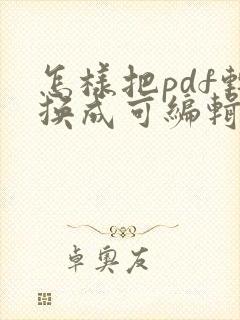 怎樣把pdf轉
換成可編輯
卓奧友